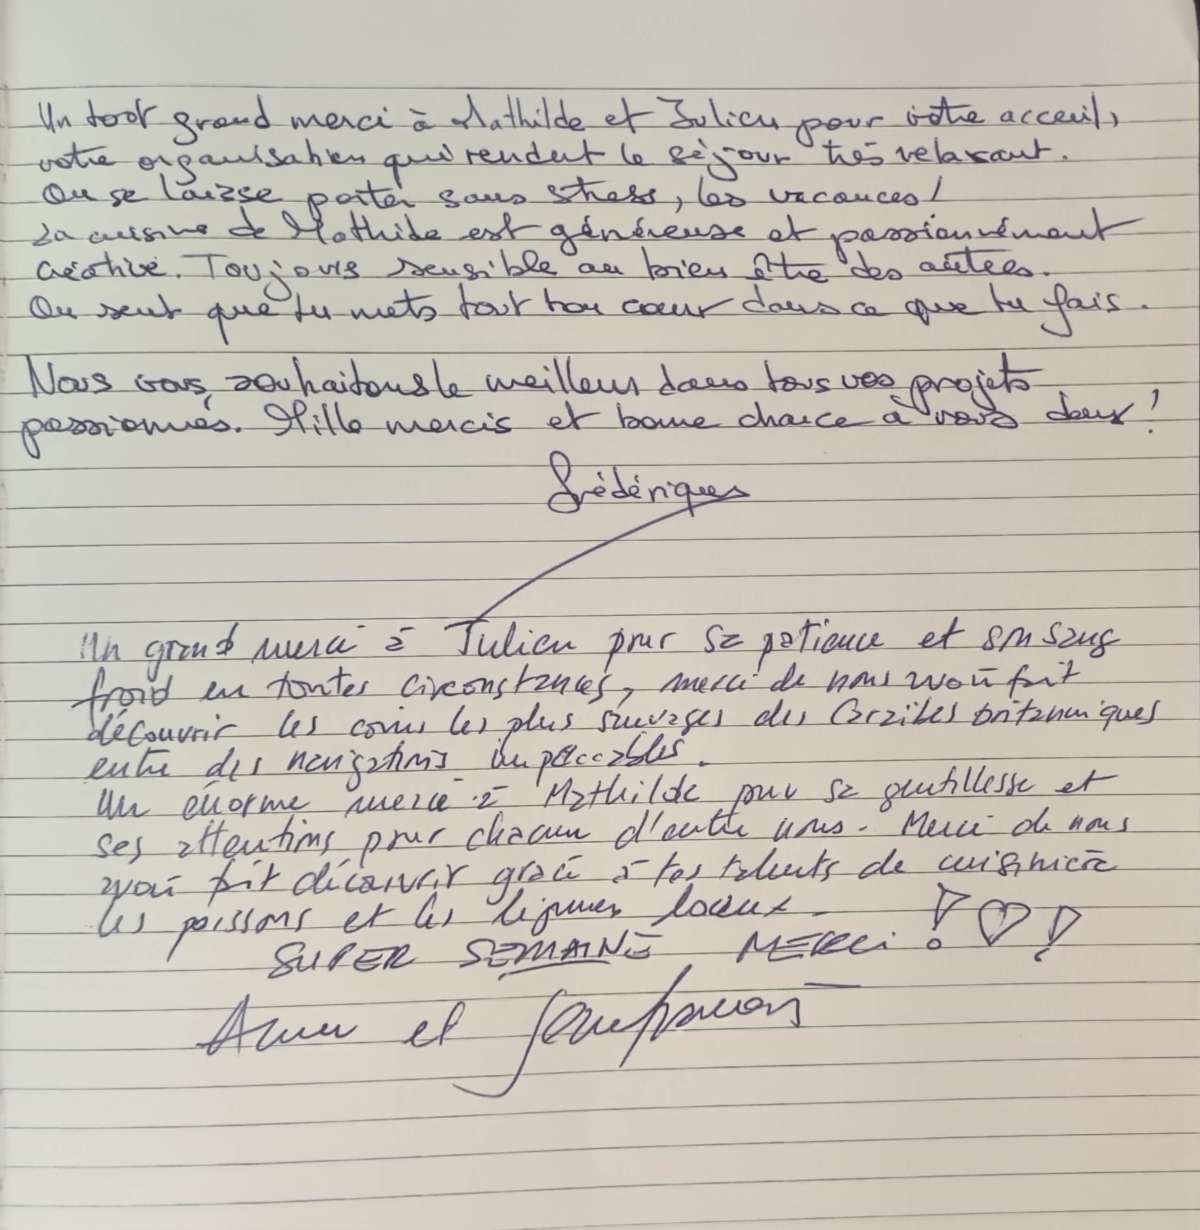 Un tout grand merci à Mathilde et Julien pour votre acceuil,
votre organisation qui rendent le séjour très relaxant.
On se laisse porter sans stress, les vacances!
La cuisine de Mathilde est généreuse et passionnément
créative. Toujours sensible au bien être des autres.
On sent que tu mets tout ton cœur dans ce que tu fais.
Nous vous souhaitons le meilleur dans tous vos projets
passionnés. Mille mercis et bonne chance à vous deux!
Frédérique
Un grand merci à Julien pour sa patience et son sang
froid en toutes circonstances, merci de nous avoir fait
découvrir les coins les plus sauvages des Caraïbes britanniques
entre des navigations impeccables.
Un énorme merci à Mathilde pour sa gentillesse et
ses attentions pour chacun d'entre nous. Merci de nous
avoir fait découvrir grâce à tes talents de cuisinière
les poissons et les légumes locaux.
SUPER SEMAINE MERCI ! ♡ !
Anne et Jean François